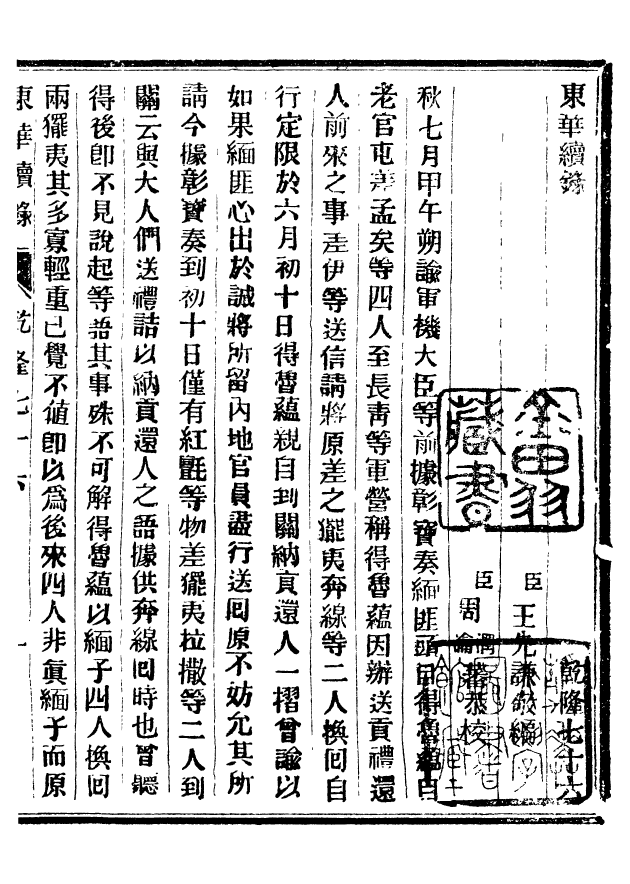 東華續錄
乾隆七十六
臣王先謙敬編
臣周潤蕃周瀹蕃恭校
秋七月甲午朔諭軍機大臣等前據彰寶奏緬匪頭目得魯蘊自
老官屯差孟矣等四人至長青等軍營稱得魯蘊因辦送貢禮還
人前來之事差伊等送信請將原差之擺夷奔線等二人換回自
行定限於六月初十日得魯蘊親自到關納貢還人一摺曾諭以
如果緬匪心出於誠將所留內地官員盡行送回原不妨允其所
請今據彰寶奏到初十日僅有紅氈等物差擺夷拉撒等二人到
關云與大人們送禮詰以納貢還人之語據供奔線回時也曾聽
得後卽不見說起等語其事殊不可解得魯蘊以緬子四人換回
兩擺夷其多寡輕重已覺不値卽以爲後來四人非眞緬子而原
東華續錄 乾隆七十六 一
金田羽藏書